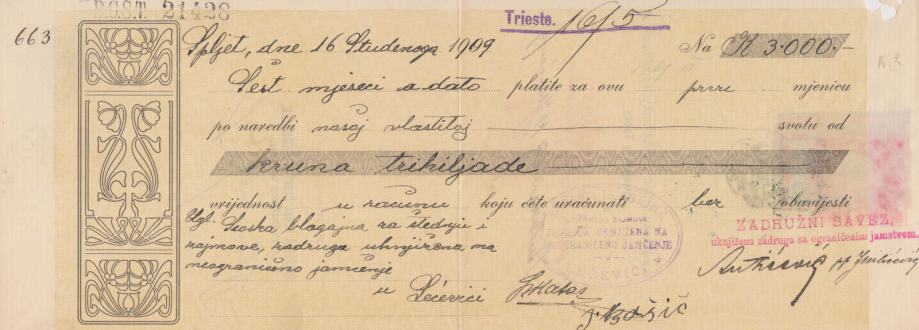 P.C.S.T. 21428
Trieste.
16/5
663
Spljet, dne 16 Studenoga 1909
Na K 3.000.-
Šest mjeseci a dato platite za ovu prvu mjenicu
po naredbi našoj vlastitoj svotu od
kruna trihiljade
vrijednost u računu koju ćete uračunati bez obavijesti
Ugl. Seoska blagajna za štednju i
zajmove, zadruga uknjižena na
neograničeno jamčenje
u Lećevici
UKNJIŽENA NA
NEOGRANIČENO JAMČENJE
LEĆEVICI
ZADRUŽNI SAVEZ,
uknjižena zadruga sa ograničenim jamstvom.